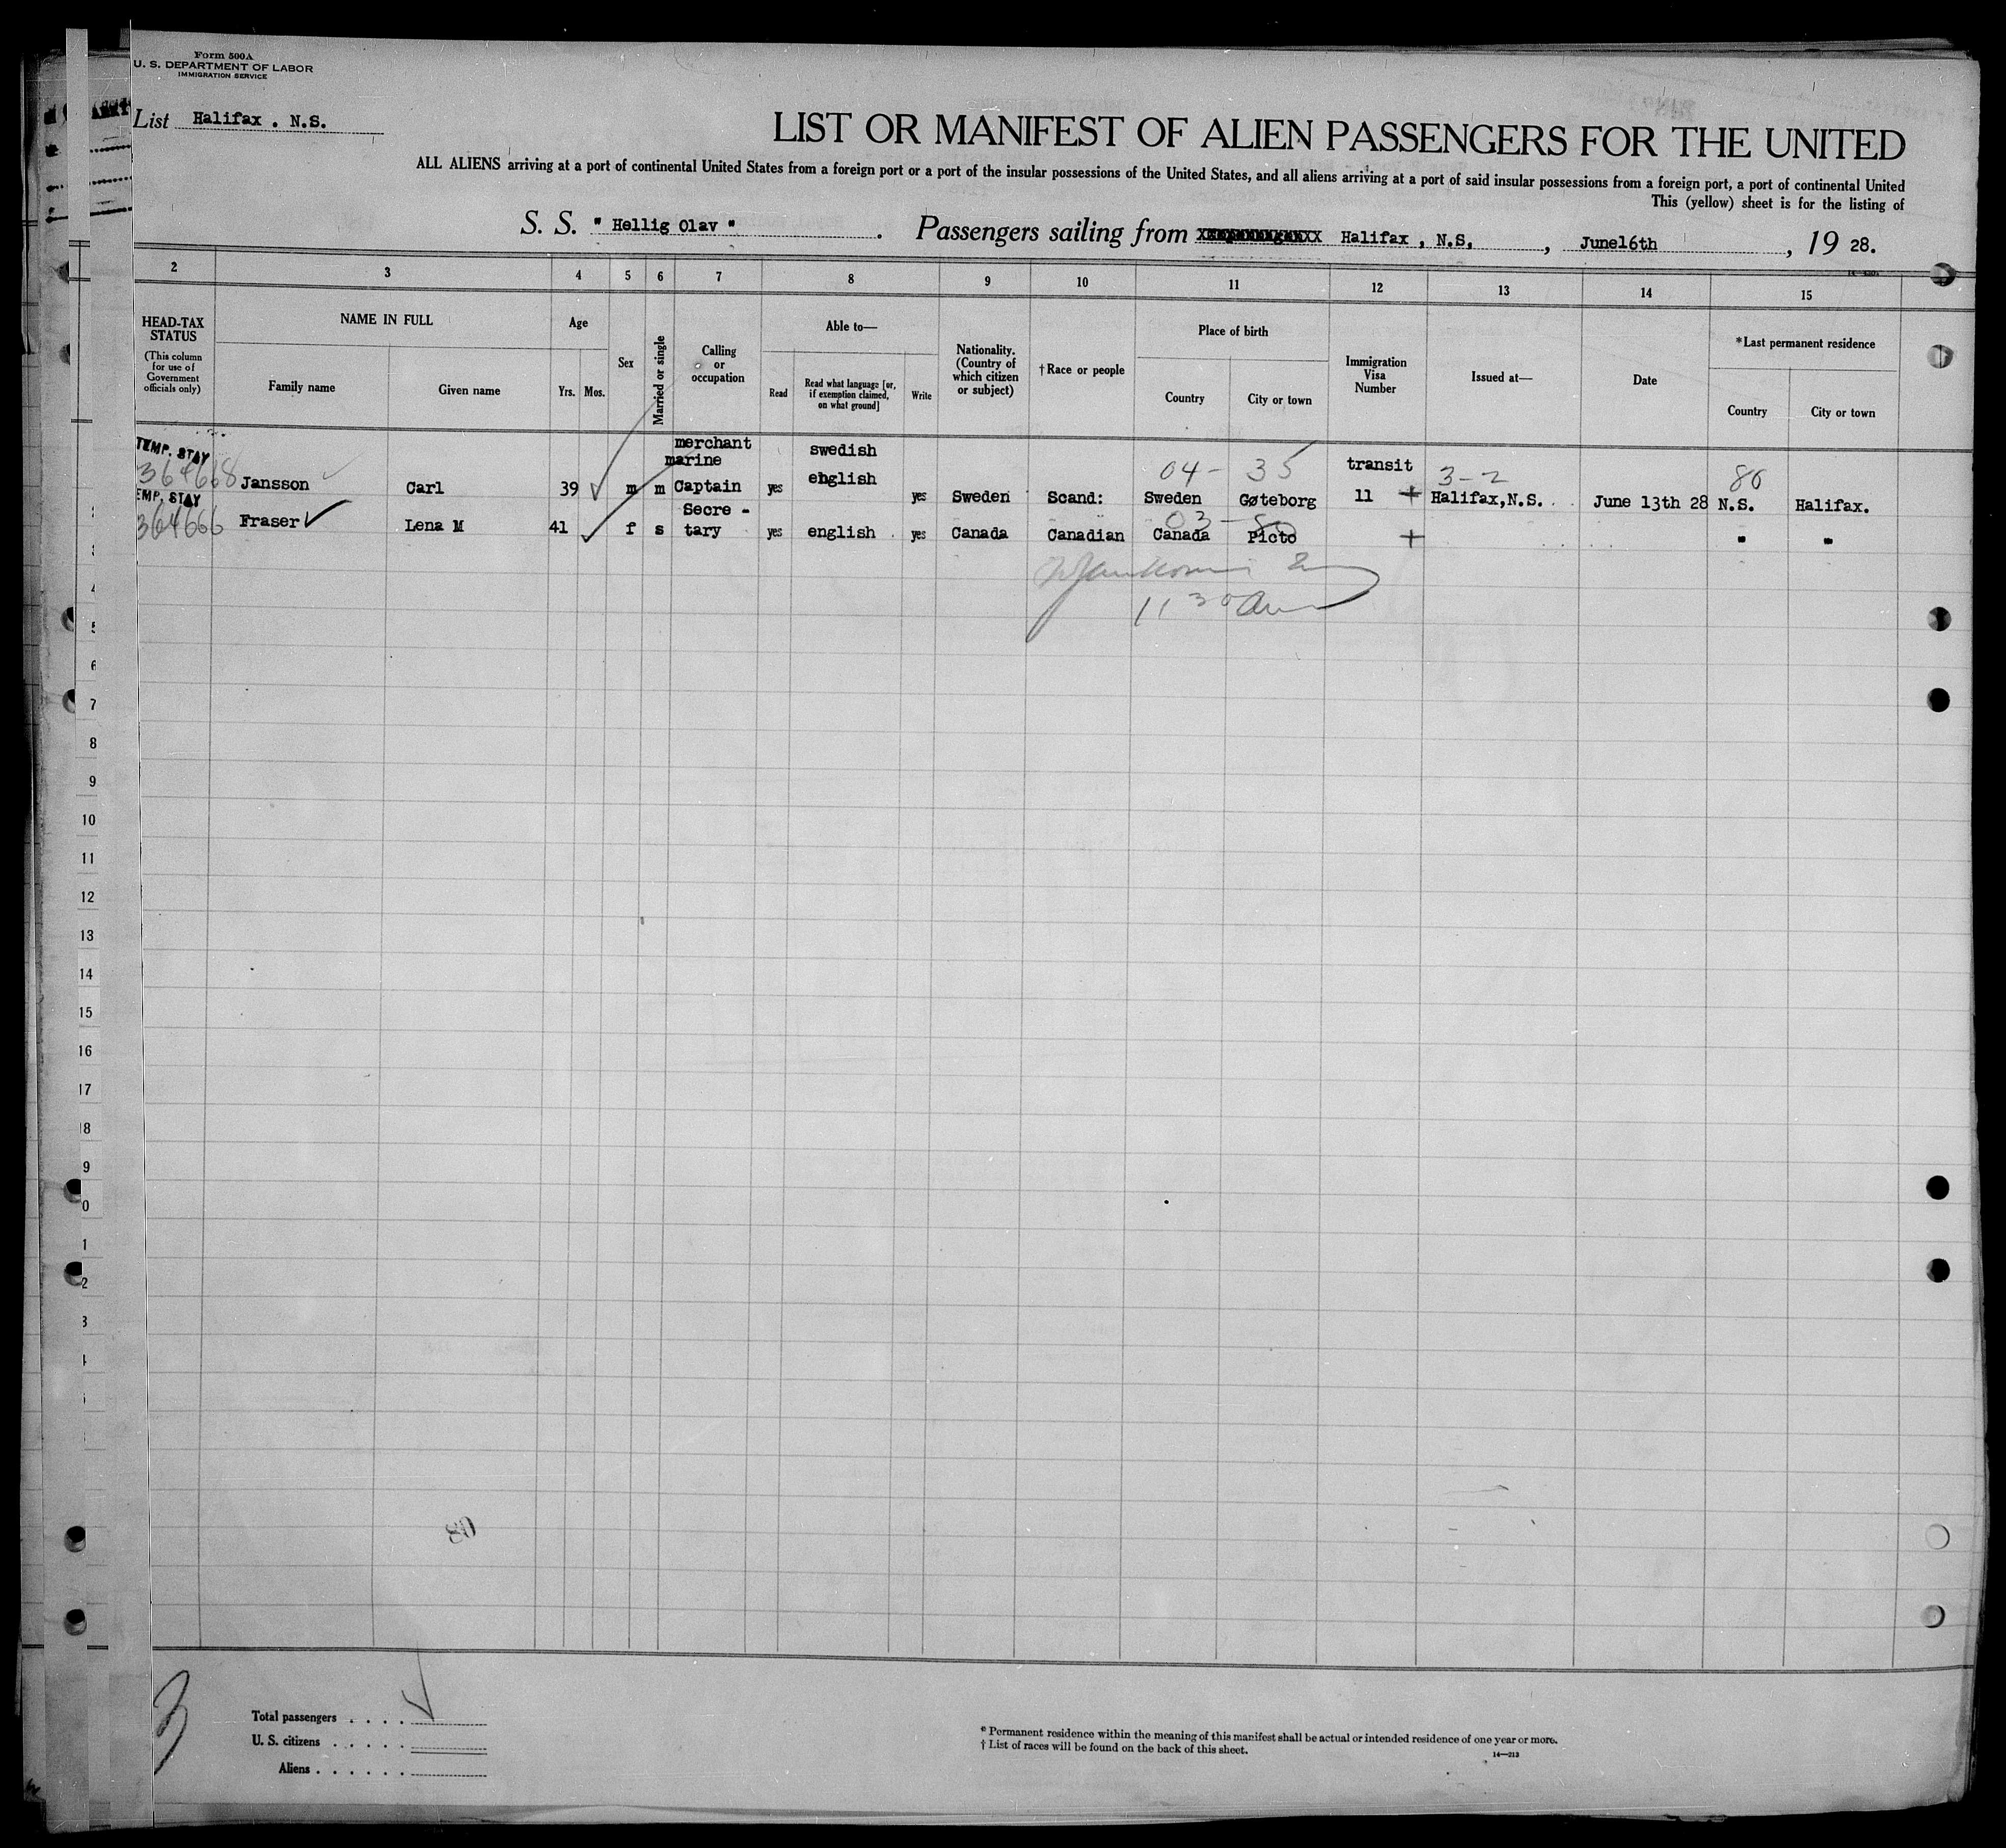 Form 500A
U. S. DEPARTMENT OF LABOR
IMMIGRATION SERVICE
List Halifax . N.S.
LIST OR MANIFEST OF ALIEN PASSENGERS FOR THE UNITED
ALL ALIENS arriving at a port of continental United States from a foreign port or a port of the insular possessions of the United States, and all aliens arriving at a port of said insular possessions from a foreign port, a port of continental United
This (yellow) sheet is for the listing of
S. S. " Hellig Olav " . Passengers sailing from Halifax , N.S. , June16th , 19 28.
2 3 4 5 6 7 8 9 10 11 12 13 14 15
HEAD-TAX STATUS (This column for use of Government officials only)
NAME IN FULL
Family name Given name
Age
Yrs. Mos.
Sex
Married or single
Calling or occupation
Able to—
Read Read what language [or, if exemption claimed, on what ground] Write
Nationality. (Country of which citizen or subject)
†Race or people
Place of birth
Country City or town
Immigration Visa Number
Issued at—
Date
*Last permanent residence
Country City or town
TEMP. STAY merchant swedish
marine 04- 35 transit 3-2 80
364668 Jansson Carl 39 m m Captain yes english yes Sweden Scand: Sweden Gøteborg 11 + Halifax,N.S. June 13th 28 N.S. Halifax.
EMP. STAY Secre - 03-
364666 Fraser Lena M 41 f s tary yes english . yes Canada Canadian Canada Picto + " "
11 30 am
4
5
6
7
8
9
10
11
12
13
14
15
16
17
18
9
0
1
2
3
Total passengers . . . .
U. S. citizens . . . . .
Aliens . . . . . .
* Permanent residence within the meaning of this manifest shall be actual or intended residence of one year or more.
† List of races will be found on the back of this sheet.
14—213